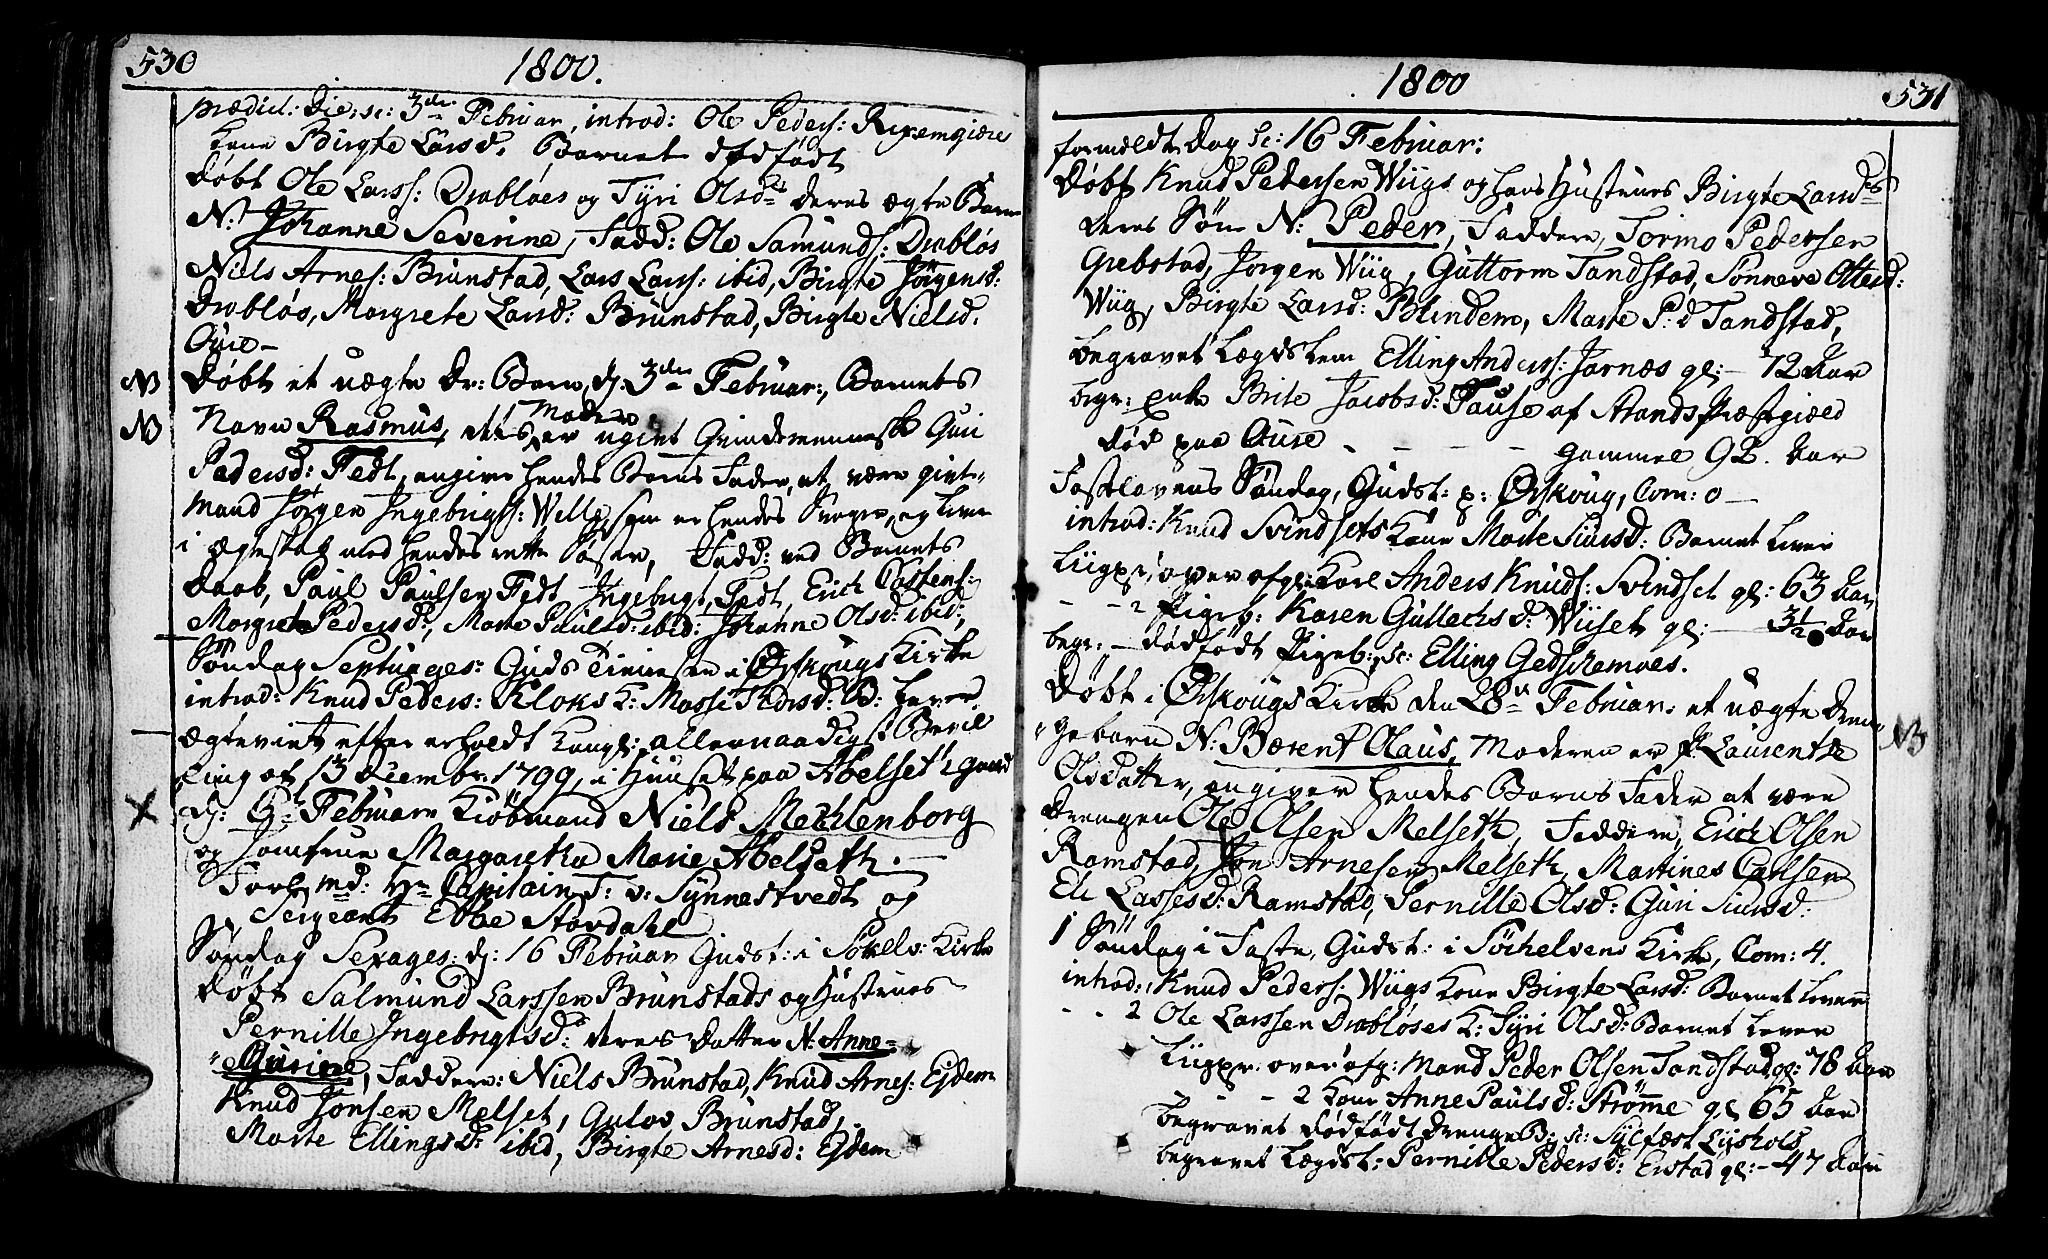 530
1800.
prædict: Die: sc: 3die Februar, introd: Ole Peders: Rexemgjære
Kone Birgte Larsd. Barnet dødfødt
Døbt Ole Larss: Drabløes og Tÿri Olsd: deres ægte Barn
N: Johanne Severine, Fadd: Ole Samunds: Drabløs
Niels Arnes: Brunstad, Lars Larss: ibid, Birgte Jørgensd:
Drabløs, Margrete Larsd: Brunstad, Birgte Nielsd.
Oure –
NB Døbt et uægte Dr: Barn, d: 3die Februar:, Barnets
NB Navn Rasmus, dets Moder er ugivt Qvindemenniske Guri
Pedersd: Fedt, angiver hendes Barns Fader, at være givte
Mand Jørgen Ingebrigts: Welle, som er hendes Svoger, og lever
i Ægteskab med hendes rette Søster, Fadd: ved Barnets
Daab, Paul Paulsen Fedt, Ingebrigt Fedt, Erich Ostens:
Margrete Pedersd:, Marte Paulsd: ibid: Johanne Olsd: ibid:
Søndag Septuages: Guds Tienesten i Ørskougs Kirke
introd: Knud Peders: Kloks K: Masse Pedersd: B: lever
Ægteviet efter erholdt Kongl: allernaadigst Bevil
ling af 13 Decembr: 1799, i Huuset paa Abelset gaard
X d: Februar Kiøbmand Niels Mechlenborg
og Jomfrue Margaretha Marie Abelseth.
Forl: md: Hr Capitain T: v: Synnestvedt og
Sergeant Ebbe Stordahl
Søndag Sexages: d: 16 Februar Gudst: i Søkelv: Kirke
Døbt Salmund Larssen Brunstads og Hustrues
Pernille Ingebrigtsd: deres Datter N: Anne-
Guriene, Faddere: Niels Brunstad, Knud Arnes: Ejdem
Knud Jonsen Melset, Gulov Brunstad,
Marte Ellingsd: ibid, Birgte Arnesd: Ejdem
1800
531
formeldte Dag sc: 16 Februar:
Døbt Knud Pedersen Wiigs og hans Hustrues Birgte Larsd:
deres Søn N: Peder, Faddere, Tormo Pedersen
Grebstad, Jørgen Wiig, Guttorm Tandstad, Sønneve Ottesd:
Wiig, Birgte Larsd: Blindem, Marte P:d Tandstad,
begravet Lægdslem Elling Anderss: Jarnæs gl: – 72 Aar
begr: Enke Brite Jacobsd: Pause af Strands Præstegield
død paa Oure - - - - gammel 92. Aar
Fastelavens Søndag, Gudst: p: Ørskoug, Com: 0 –
introd: Knud Svindsets Kone Marte Siursd: Barnet lever
Liigpr: over afg: Karl Anders Knuds: Svindset gl: 63 Aar
- - 2 Pigeb: Karen Gullachsd: Wiiset gl: – 3½ Aar
begr: – dødfødt Pigeb: sc: Elling Gedschemoes.
Døbt i Ørskougs Kirke den 28de Februar: et uægte Dren-
gebarn N: Bærent Olaus, Moderen er P: Laurentse NB
Olsdatter, angiver hendes Barns Fader at være
Drengen Ole Olsen Melseth, Faddere, Erich Olsen
Ramstad, Jon Arnesen Melseth, Martines Carlsen
Eli Lassesd: Ramstad, Pernille Olsd: Guri Siursd:
1 Søndag i Faste, Gudst: i Söchelvens Kirke, Com: 4.
introd: Knud Peders: Wiigs Kone Birgte Larsd: Barnet lever
- - 2 Ole Larssen Drabløses K: Tÿri Olsd: Barnet lever
Liigpr: over afg: Mand Peder Olsen Tandstad gl: 78 Aar
- - 2 Kone Anne Paulsd: Strømme gl 65 Aar
begravet dødfødt Drenge B: sc: Sylfæst Lyshols
begravet Lægdsl: Pernille Pedersd: Erstad gl: – 47 Aar